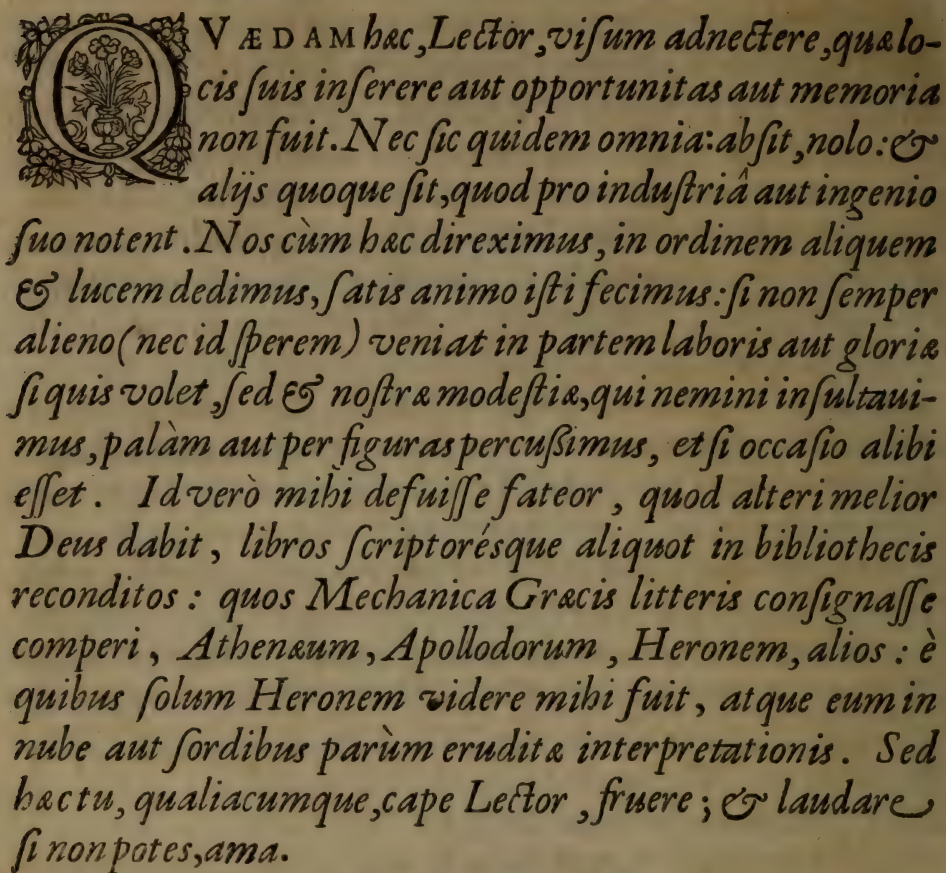 QVÆDAM hæc, Lector, visum adnectere, quæ lo-
cis suis inserere aut opportunitas aut memoria
non fuit. Nec sic quidem omnia: absit, nolo: &
alijs quoque sit, quod pro industriâ aut ingenio
suo notent. Nos cùm hæc direximus, in ordinem aliquem
& lucem dedimus, satis animo isti fecimus: si non semper
alieno (nec id sperem) veniat in partem laboris aut gloriæ
si quis volet, sed & nostræ modestiæ, qui nemini insultaui-
mus, palàm aut per figuras percußimus, etsi occasio alibi
esset. Id verò mihi defuisse fateor, quod alteri melior
Deus dabit, libros scriptorésque aliquot in bibliothecis
reconditos: quos Mechanica Græcis litteris consignasse
comperi, Athenæum, Apollodorum, Heronem, alios: è
quibus solum Heronem videre mihi fuit, atque eum in
nube aut sordibus parùm eruditæ interpretationis. Sed
hæc tu, qualiacumque, cape Lector, fruere; & laudare
si non potes, ama.